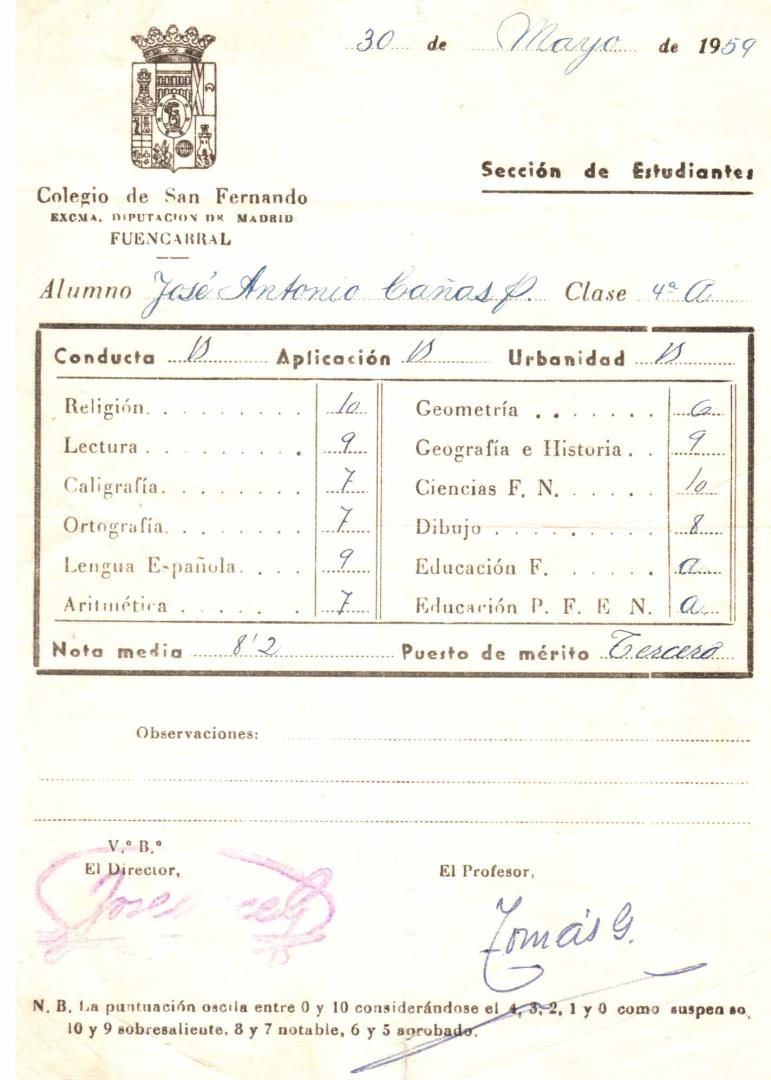 30 de Mayo de 1959
Sección de Estudiantes
Colegio de San Fernando
EXCMA. DIPUTACION DE MADRID
FUENCARRAL
Alumno José Antonio Cañas P. Clase 4ª A
Conducta B Aplicación B Urbanidad B
Religión 10 Geometría 6
Lectura 9 Geografía e Historia 9
Caligrafía 7 Ciencias F. N. 10
Ortografía 7 Dibujo 8
Lengua Española 9 Educación F. a
Aritmética 7 Educación P. F. E N. a
Nota media 8'2 Puesto de mérito Tercero
Observaciones:
V.º B.º
El Director, El Profesor,
Tomás G.
N. B. La puntuación oscila entre 0 y 10 considerándose el 4, 3, 2, 1 y 0 como suspenso,
10 y 9 sobresaliente, 8 y 7 notable, 6 y 5 aprobado.